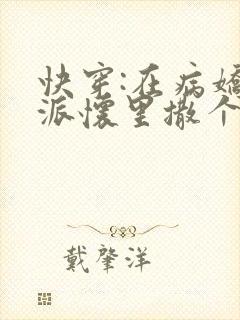 快穿:在病嬌
派懷里撒个
戴肇洋